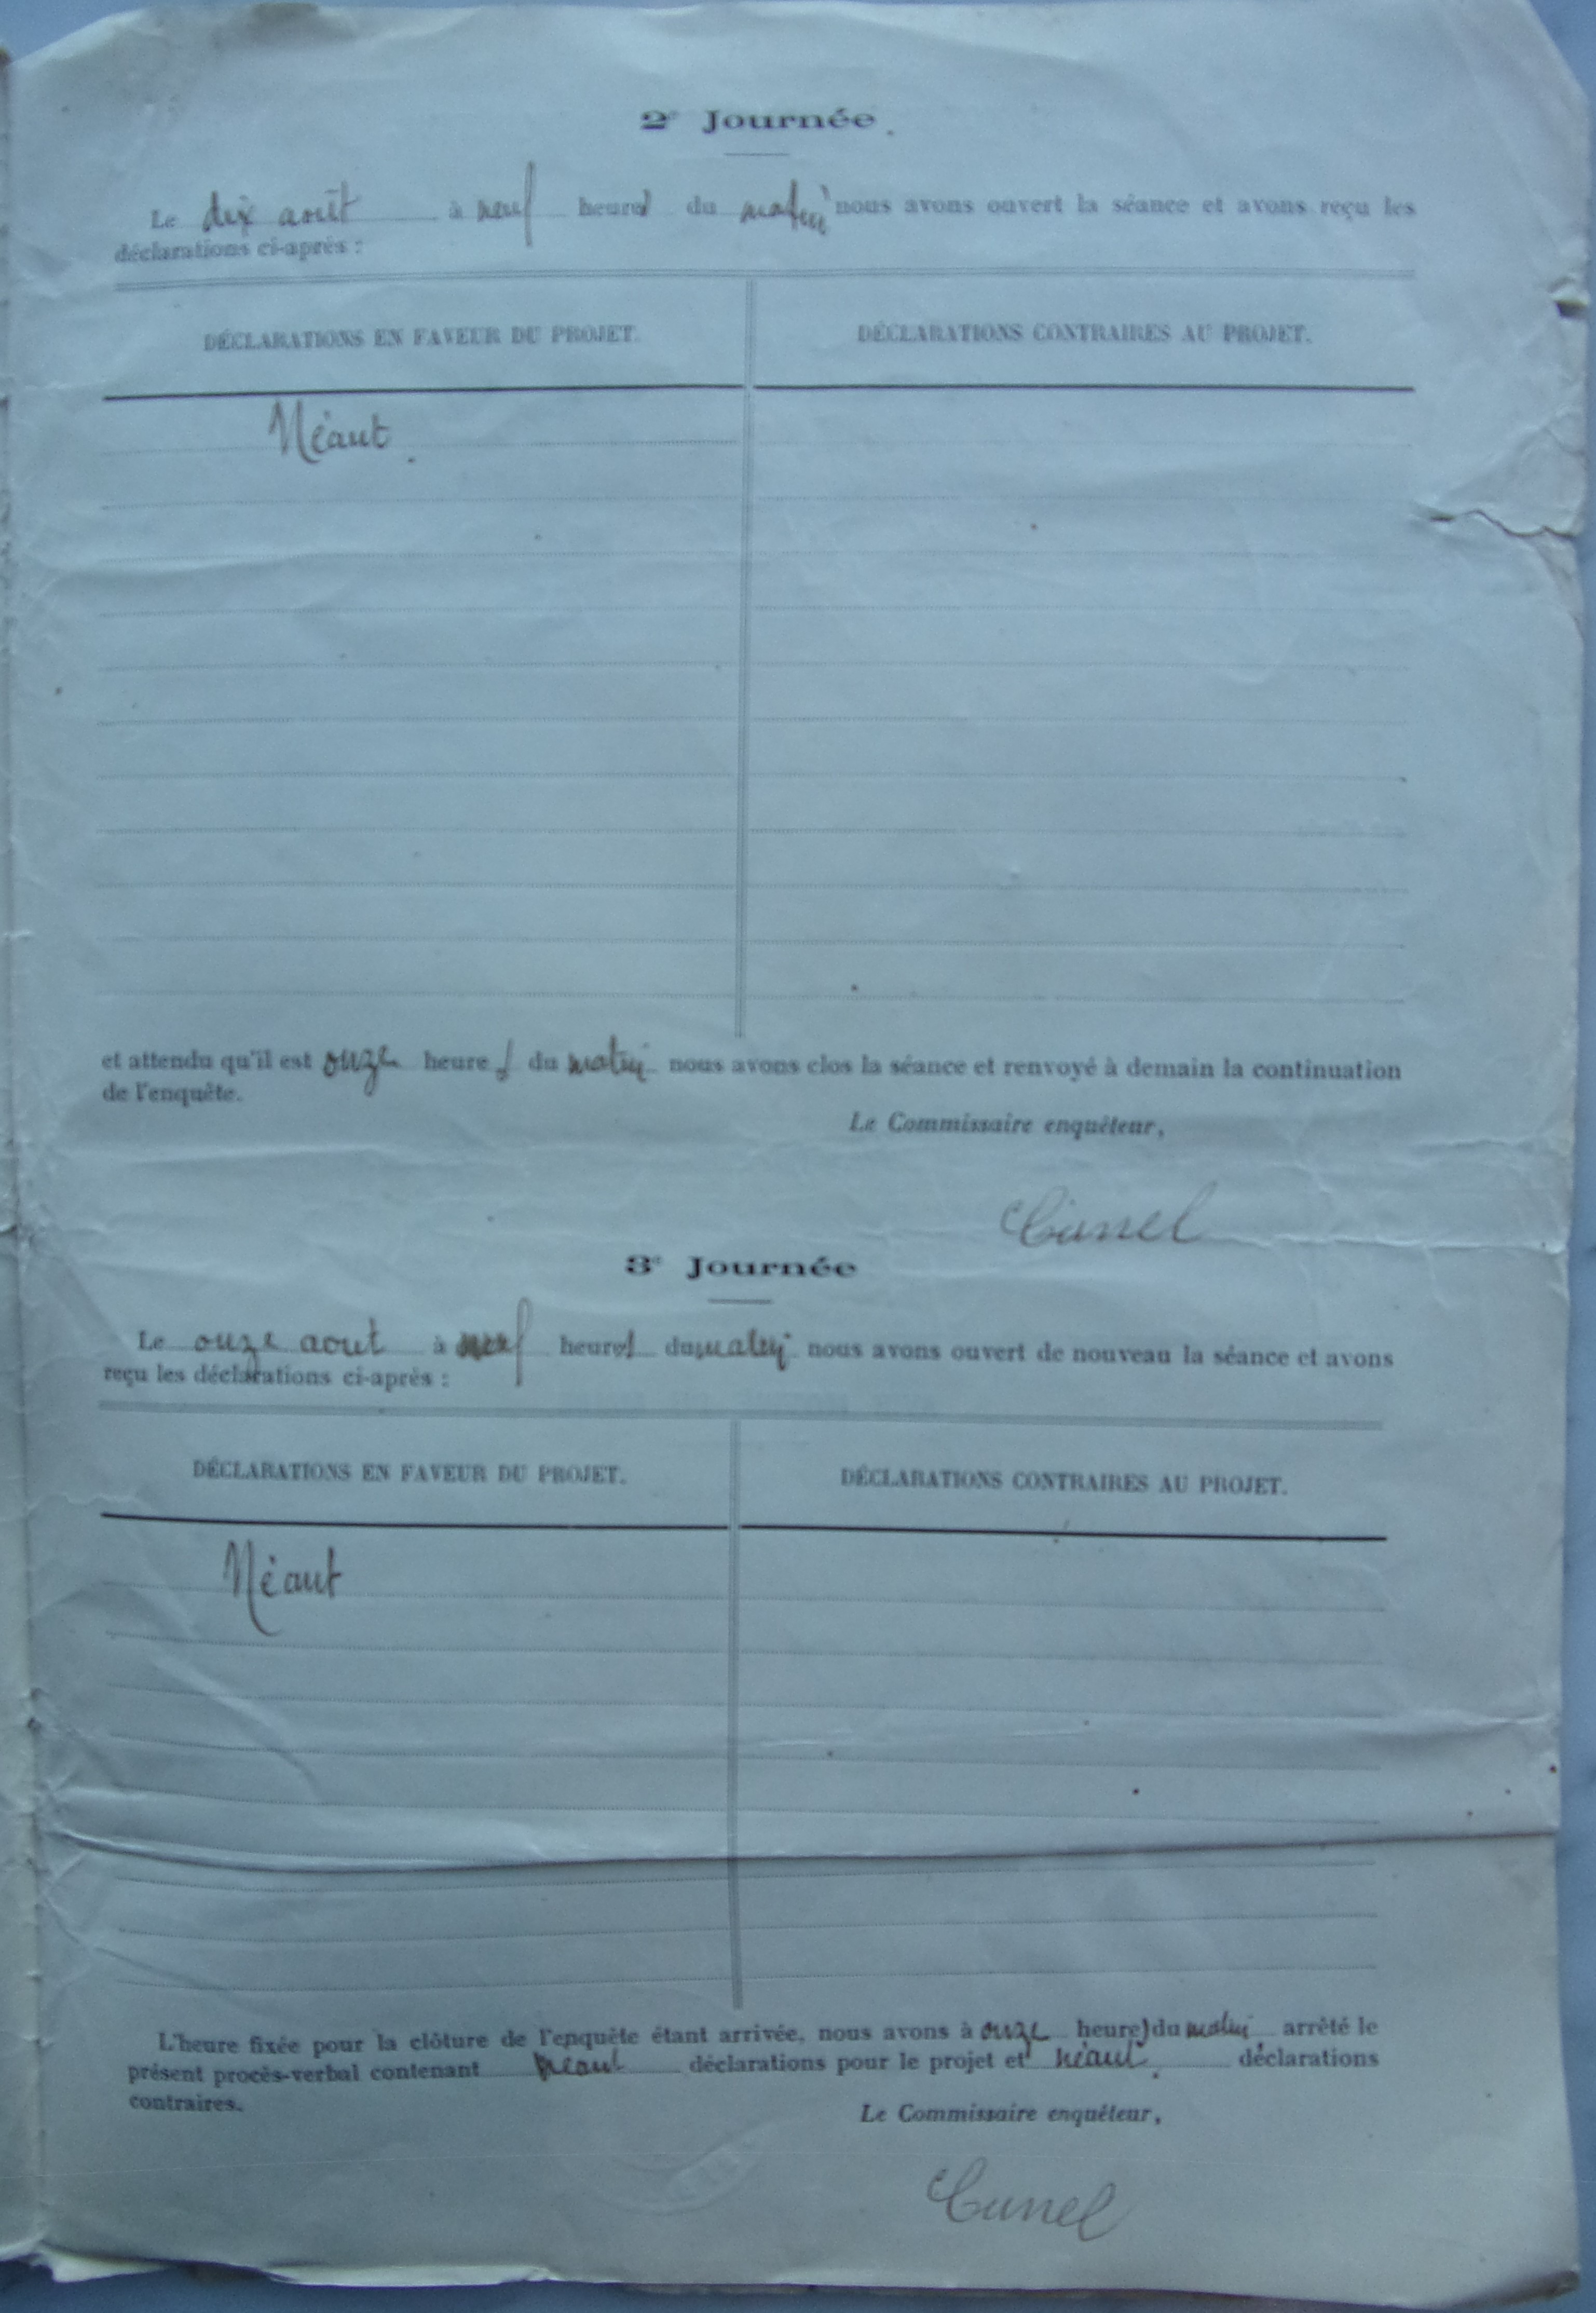 2e Journée.
Le dix août à neuf heures du matin nous avons ouvert la séance et avons reçu les
déclarations ci-après :
DÉCLARATIONS EN FAVEUR DU PROJET.
DÉCLARATIONS CONTRAIRES AU PROJET.
Néant.
et attendu qu'il est onze heures du matin nous avons clos la séance et renvoyé à demain la continuation
de l'enquête.
Le Commissaire enquêteur,
Cunel
3e Journée
Le onze aout à neuf heures du matin nous avons ouvert de nouveau la séance et avons
reçu les déclarations ci-après :
DÉCLARATIONS EN FAVEUR DU PROJET.
DÉCLARATIONS CONTRAIRES AU PROJET.
Néant
L'heure fixée pour la clôture de l'enquête étant arrivée, nous avons à onze heures du matin arrêté le
présent procès-verbal contenant néant déclarations pour le projet et néant. déclarations
contraires.
Le Commissaire enquêteur,
Cunel